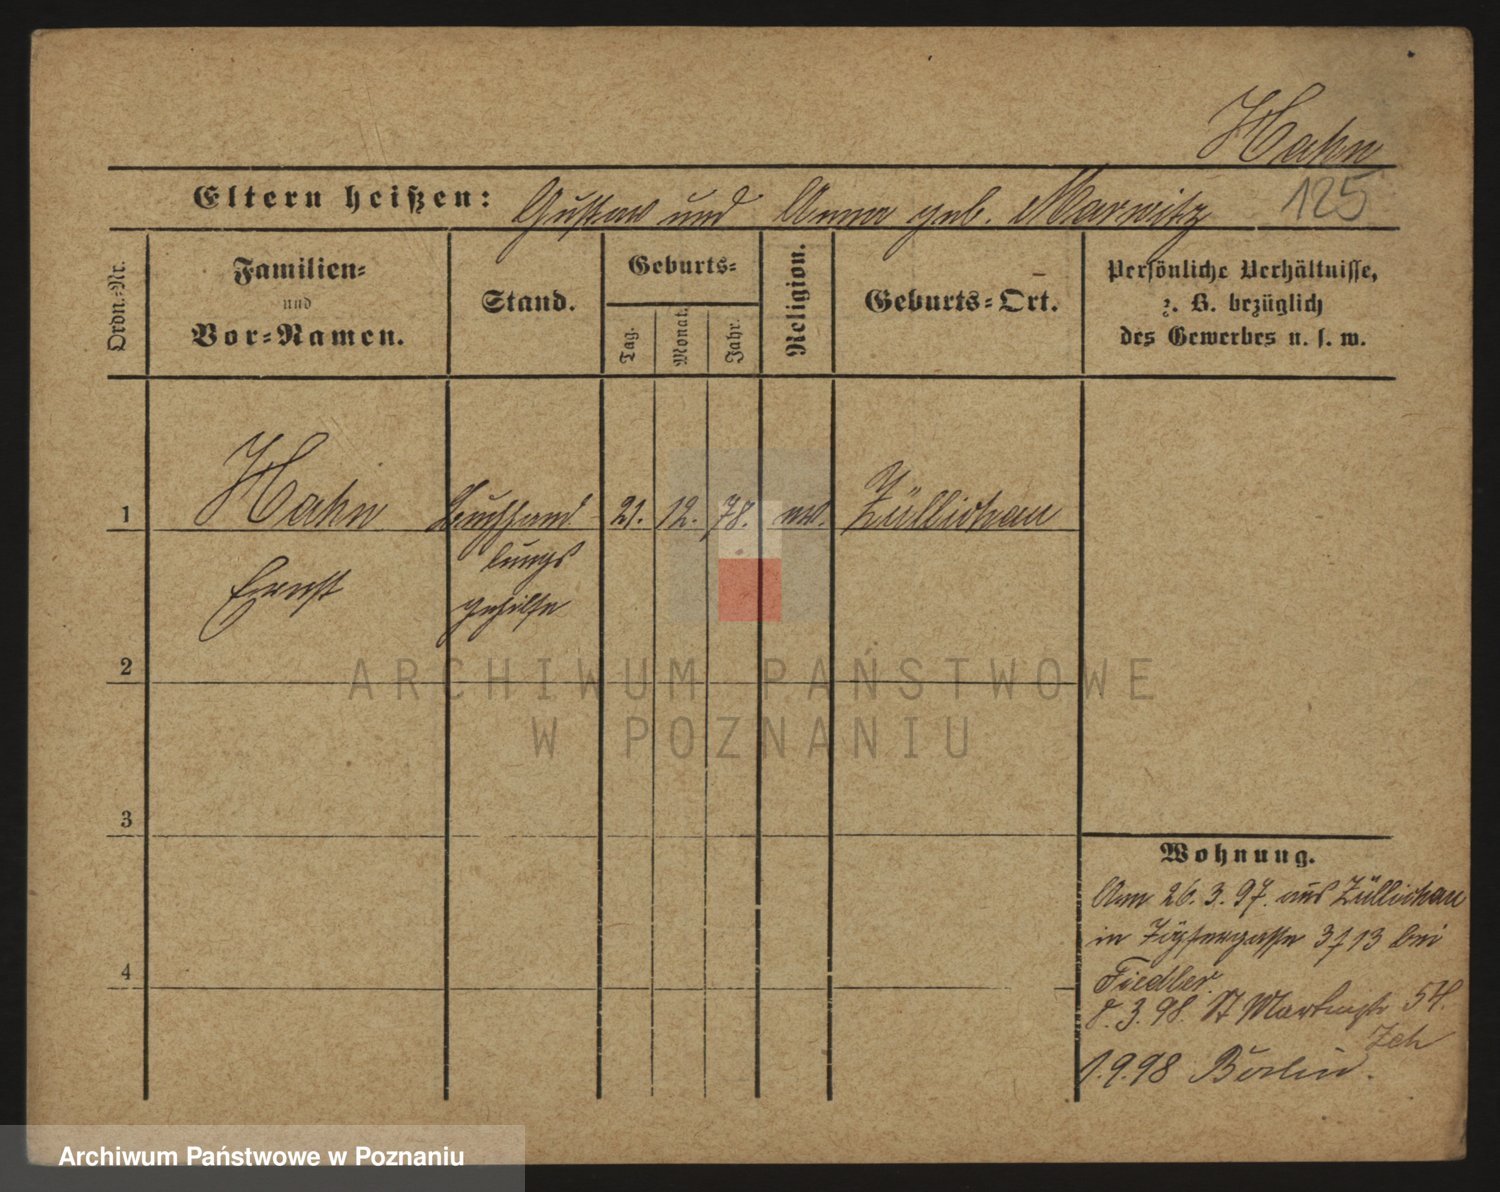 Hahn
125
Eltern heißen: Gustav und Anna geb. Marwitz
Ordn.-Nr.
Familien-
und
Vor-Namen.
Stand.
Geburts-
Tag.
Monat.
Jahr.
Religion.
Geburts-Ort.
Persönliche Verhältnisse,
z. B. bezüglich
des Gewerbes u. s. w.
1 Hahn Buchhand 21. 12. 78. ev. Züllichau
lungs
Ernst gehilfe
2
3
4
ARCHIWUM PAŃSTWOWE
W POZNANIU
Wohnung.
Am 26.3.97. aus Züllichau
in 3 13 bei
Fiedler.
8.3.98. St Martinstr 54.
1.9.98 Berlin.
Archiwum Państwowe w Poznaniu